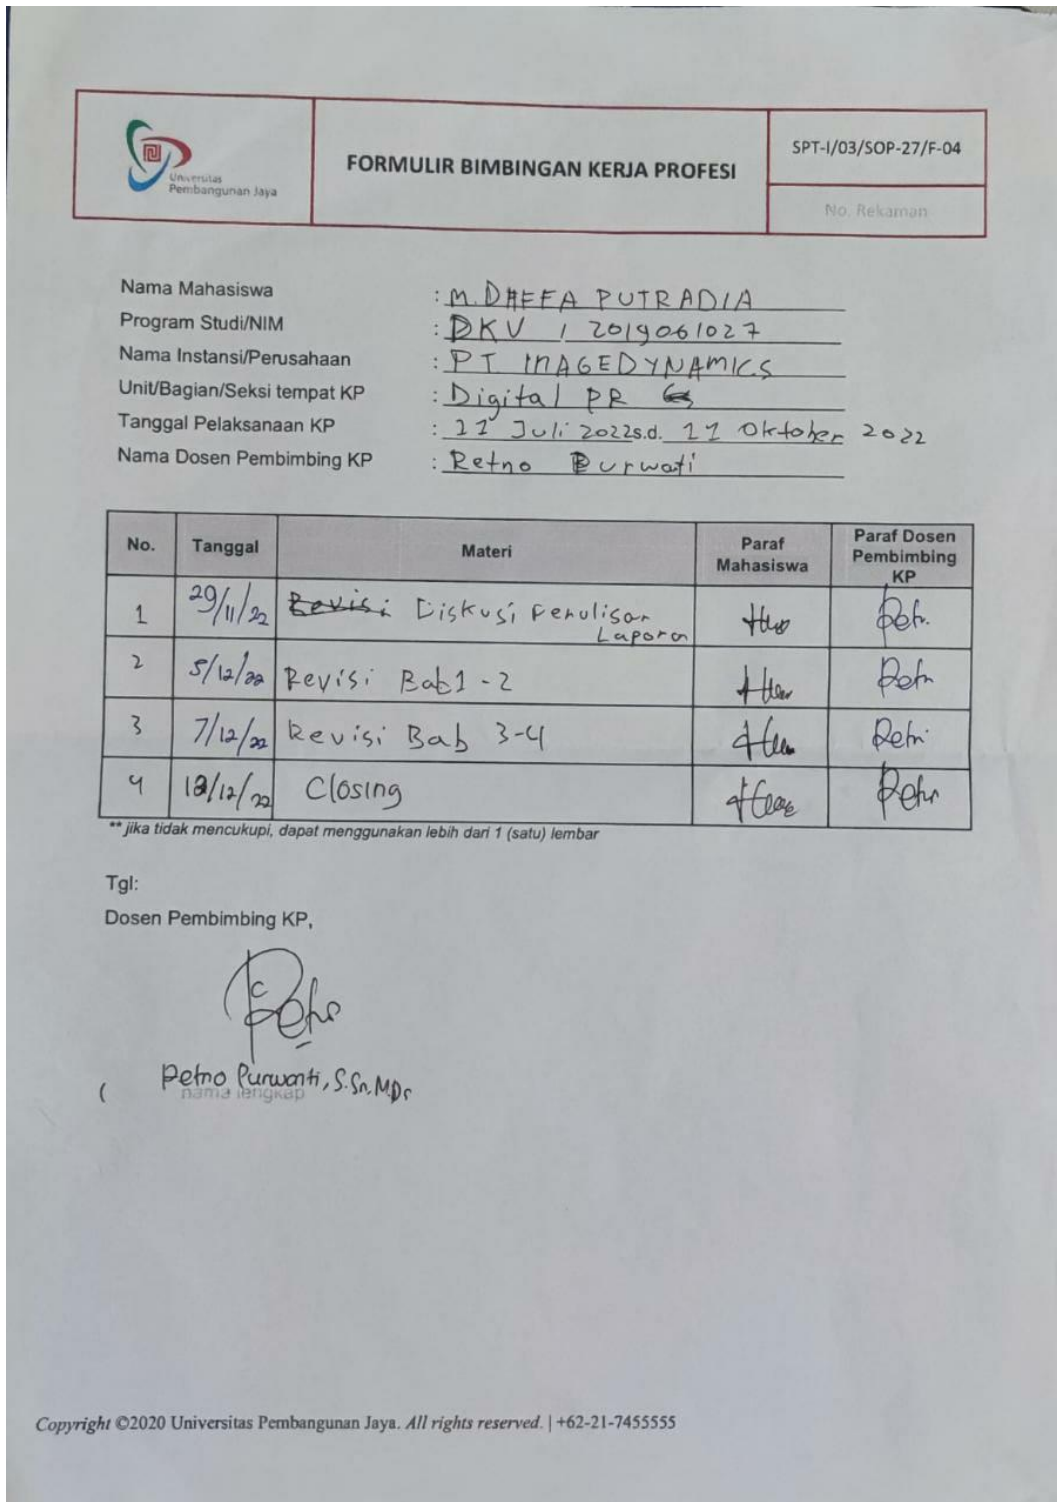 Universitas
Pembangunan Jaya
FORMULIR BIMBINGAN KERJA PROFESI
SPT-I/03/SOP-27/F-04
No. Rekaman
Nama Mahasiswa : M. DHEFA PUTRADIA
Program Studi/NIM : DKV / 2019061027
Nama Instansi/Perusahaan : PT IMAGEDYNAMICS
Unit/Bagian/Seksi tempat KP : Digital PR
Tanggal Pelaksanaan KP : 11 Juli 2022 s.d. 11 Oktober 2022
Nama Dosen Pembimbing KP : Retno Purwati
No. Tanggal Materi Paraf Mahasiswa Paraf Dosen Pembimbing KP
1 29/11/22 Revisi Diskusi Penulisan Laporan
2 5/12/22 Revisi Bab 1 - 2
3 7/12/22 Revisi Bab 3-4
4 /12/22 Closing
** jika tidak mencukupi, dapat menggunakan lebih dari 1 (satu) lembar
Tgl:
Dosen Pembimbing KP,
( Retno Purwanti, S.Sn, M.Ds
nama lengkap
Copyright ©2020 Universitas Pembangunan Jaya. All rights reserved. | +62-21-7455555